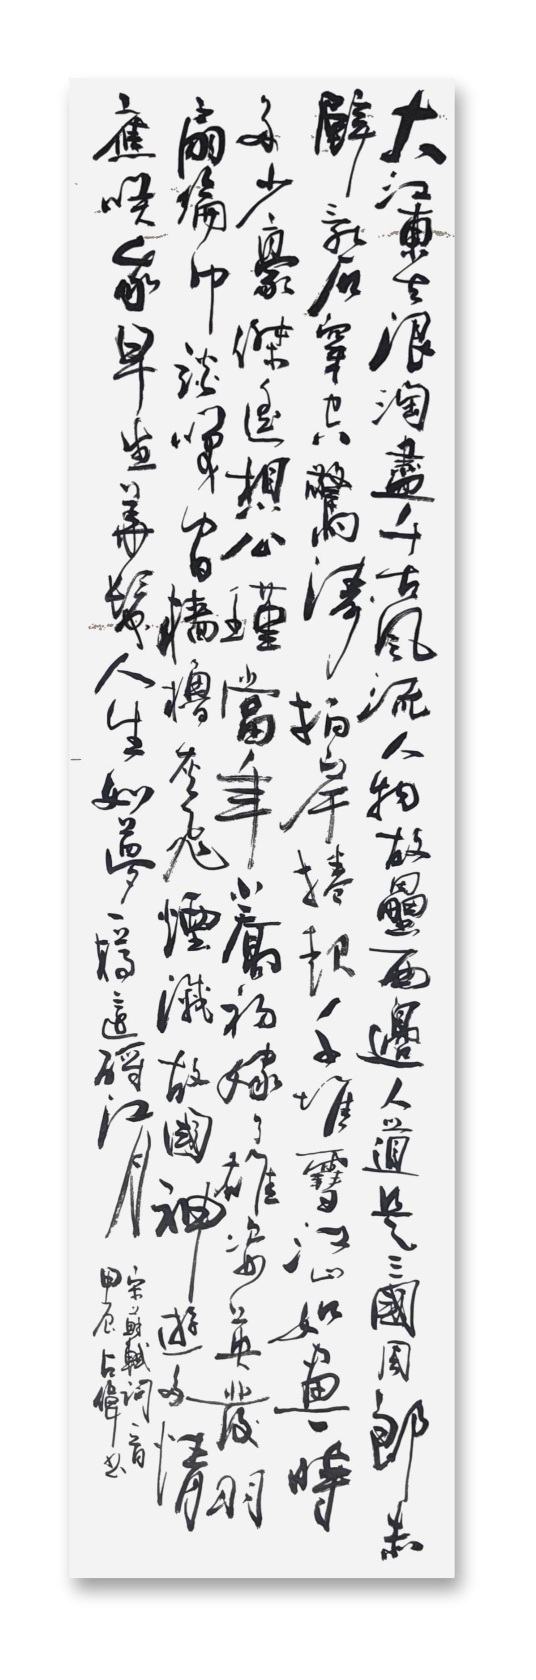 大江東去浪淘盡千古風流人物故壘西邊人道是三國周郎赤
壁亂石穿空驚濤拍岸捲起千堆雪江山如畫一時
多少豪傑遙想公瑾當年小喬初嫁了雄姿英發羽
扇綸巾談笑間檣櫓灰飛煙滅故國神遊多情
應笑我早生華髮人生如夢一樽還酹江月
宋蘇軾詞一首
甲辰占偉書